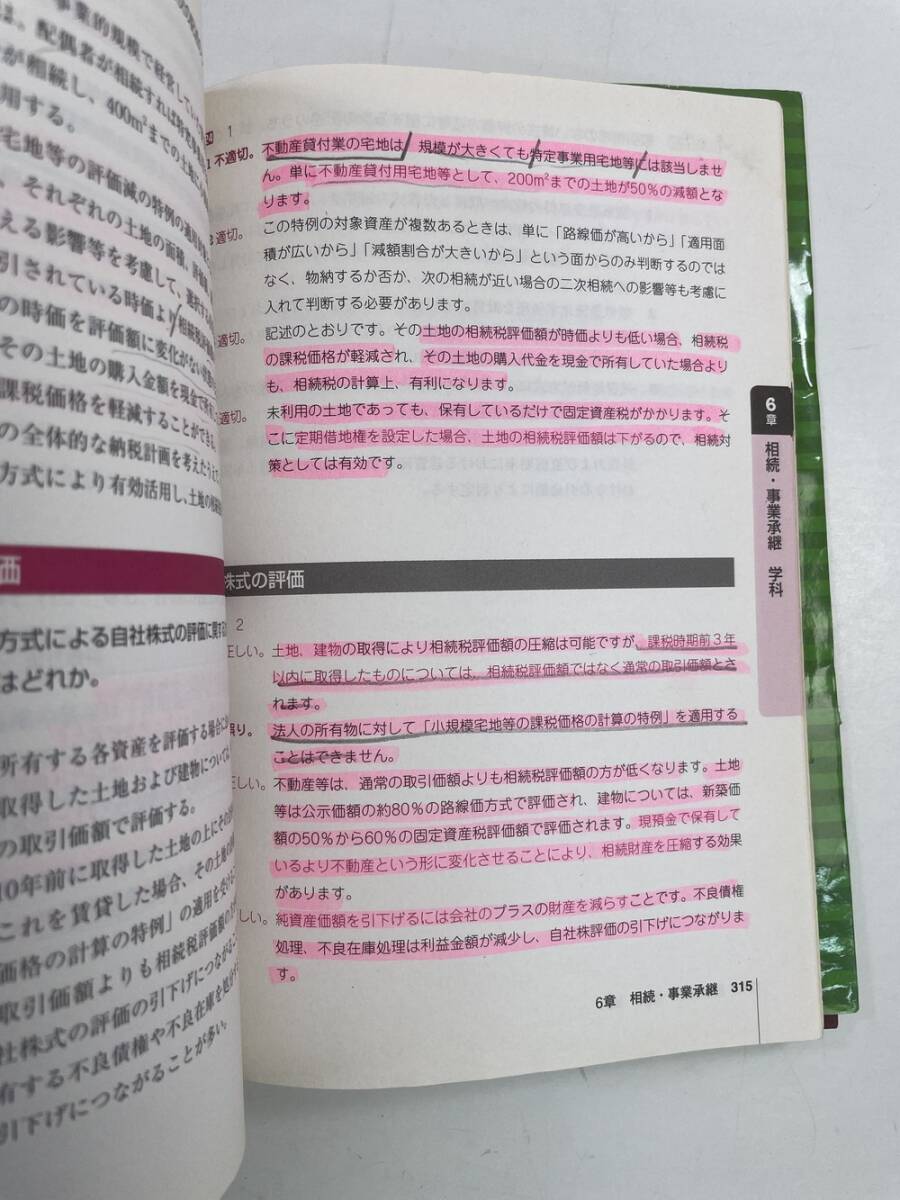 事業的規模で経営してい
は、配偶者が相続すれば特
が相続し、400m²までの土地
用する。
宅地等の評価減の特例の適用
、それぞれの土地の面積、評価額
える影響等を考慮して、選択する
引されている時価より相続税評価
の時価を評価額に変化がない
その土地の購入金額を現金で所
課税価格を軽減することができる。
の全体的な納税計画を考えたうえで
方式により有効活用し、土地の相続
価
方式による自社株式の評価に関する
はどれか。
所有する各資産を評価する場合に
取得した土地および建物については
の取引価額で評価する。
10年前に取得した土地の上にその
これを賃貸した場合、その土地の
価格の計算の特例」の適用を受ける
取引価額よりも相続税評価額の
社株式の評価の引下げにつながる
有する不良債権や不良在庫を処分す
引下げにつながることが多い。
1
1 不適切。 不動産貸付業の宅地は、規模が大きくても特定事業用宅地等には該当しませ
ん。単に不動産貸付用宅地等として、200m²までの土地が50%の減額とな
ります。
適切。 この特例の対象資産が複数あるときは、単に「路線価が高いから」「適用面
積が広いから」「減額割合が大きいから」という面からのみ判断するのでは
なく、物納するか否か、次の相続が近い場合の二次相続への影響等も考慮に
入れて判断する必要があります。
適切。 記述のとおりです。その土地の相続税評価額が時価よりも低い場合、相続税
の課税価格が軽減され、その土地の購入代金を現金で所有していた場合より
も、相続税の計算上、有利になります。
適切。 未利用の土地であっても、保有しているだけで固定資産税がかかります。そ
こに定期借地権を設定した場合、土地の相続税評価額は下がるので、相続対
策としては有効です。
株式の評価
2
正しい。 土地、建物の取得により相続税評価額の圧縮は可能ですが、課税時期前3年
以内に取得したものについては、相続税評価額ではなく通常の取引価額とさ
れます。
誤り。 法人の所有物に対して「小規模宅地等の課税価格の計算の特例」を適用する
ことはできません。
正しい。 不動産等は、通常の取引価額よりも相続税評価額の方が低くなります。土地
等は公示価額の約80%の路線価方式で評価され、建物については、新築価
額の50%から60%の固定資産税評価額で評価されます。現預金で保有して
いるより不動産という形に変化させることにより、相続財産を圧縮する効果
があります。
しい。 純資産価額を引下げるには会社のプラスの財産を減らすことです。不良債権
処理、不良在庫処理は利益金額が減少し、自社株評価の引下げにつながりま
す。
6章 相続・事業承継 315
6章
相続・事業承継 学科